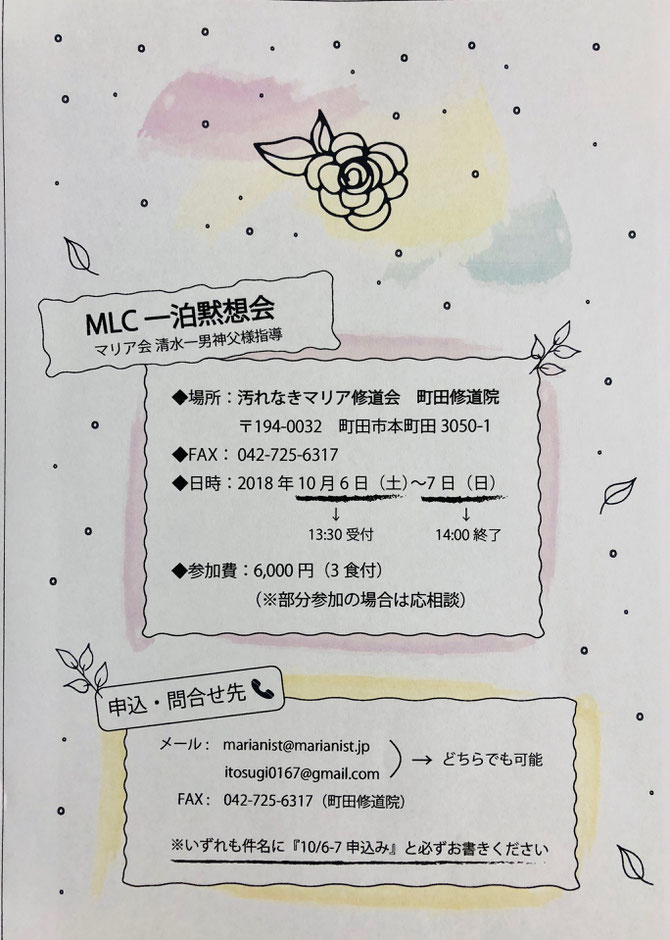 MLC 一泊黙想会
マリア会 清水一男神父様指導
◆場所：汚れなきマリア修道会　町田修道院
〒194-0032　町田市本町田 3050-1
◆FAX： 042-725-6317
◆日時：2018 年 10 月 6 日（土）～7 日（日）
↓ ↓
13:30 受付 14:00 終了
◆参加費：6,000 円（3 食付）
（※部分参加の場合は応相談）
申込・問合せ先
メール： marianist@marianist.jp
itosugi0167@gmail.com → どちらでも可能
FAX： 042-725-6317（町田修道院）
※いずれも件名に『10/6-7 申込み』と必ずお書きください